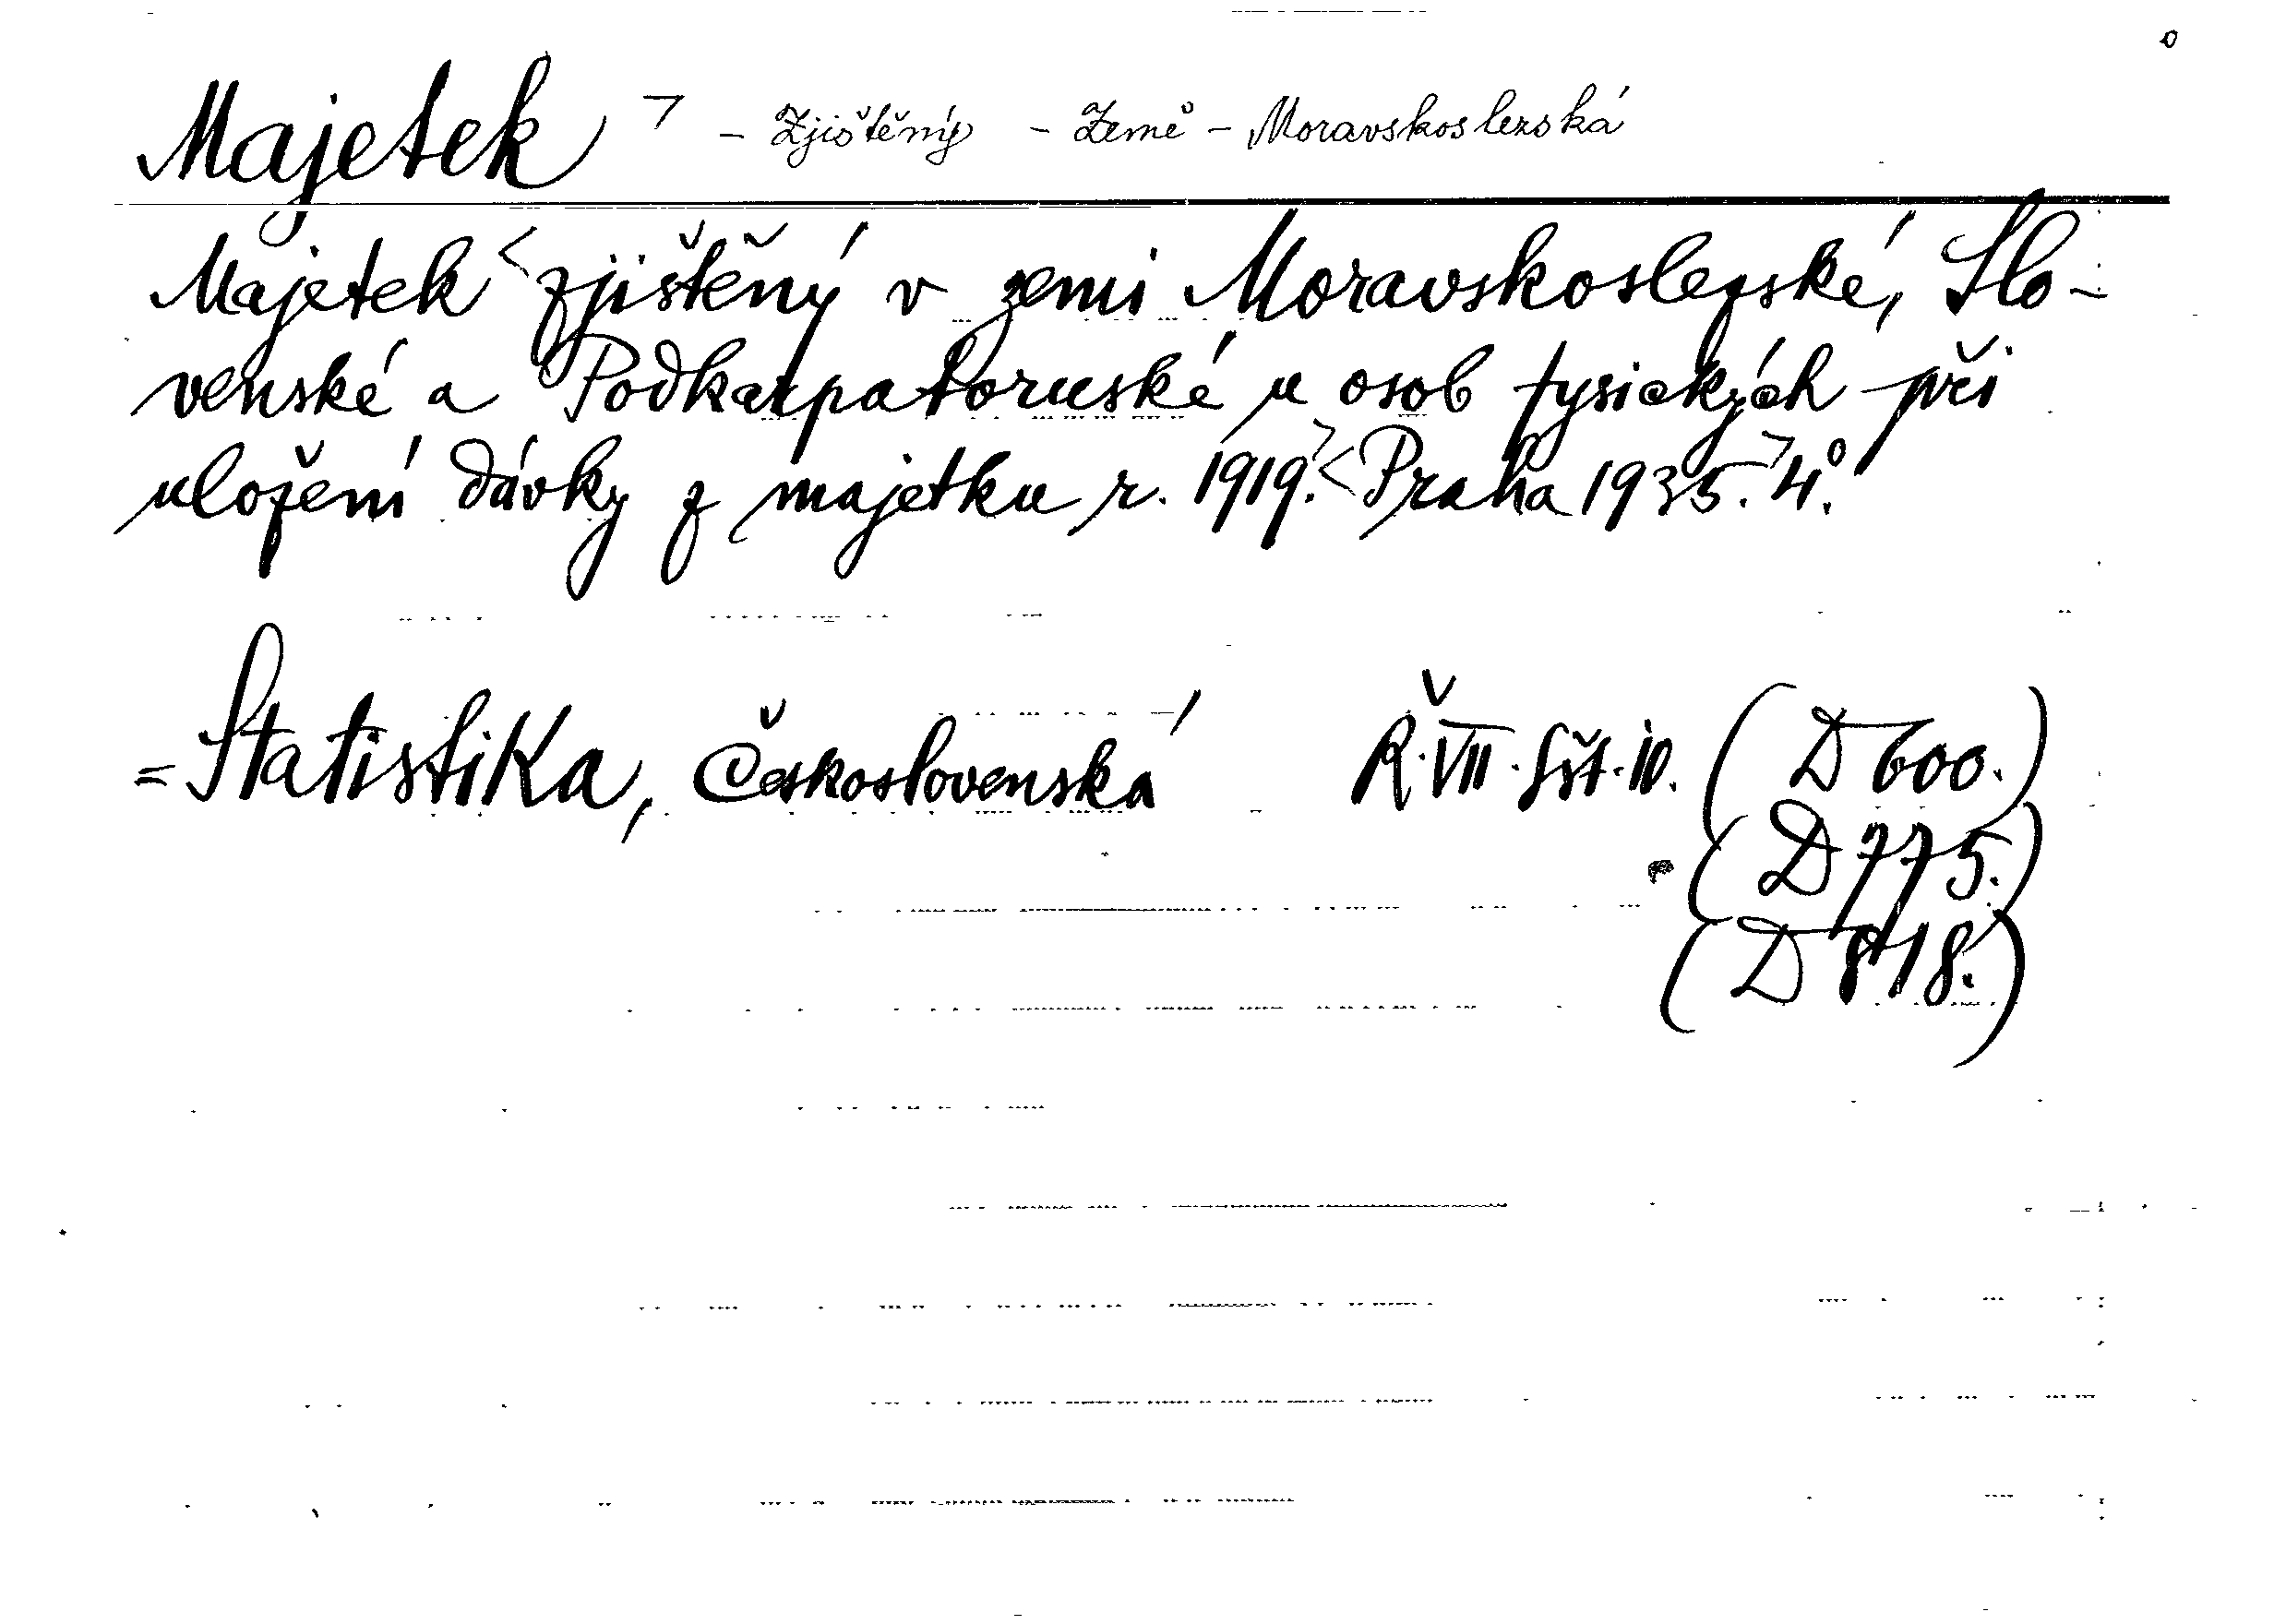 Majetek > - Zjištěný - Země - Moravskoslezská
Majetek < zjištěný v zemi Moravskoslezské, Slo-
venské a Podkarpatoruské u osob fysických při
uložení dávky z majetku r. 1919. > < Praha 1935. > 4°.
= Statistika, Československá Ř. VII. sšt. 10. (D 600.)
(D 775.)
(D 818.)